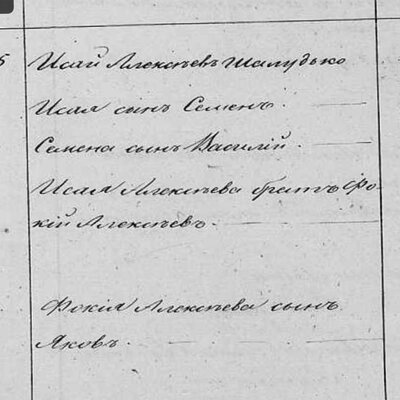 5
Исай Алексѣевъ Шалудько
Исая сынъ Семенъ.
Семена сынъ Василій.
Исая Алексѣева братъ Фо-
кій Алексѣевъ.
Фокія Алексѣева сынъ
Яковъ.